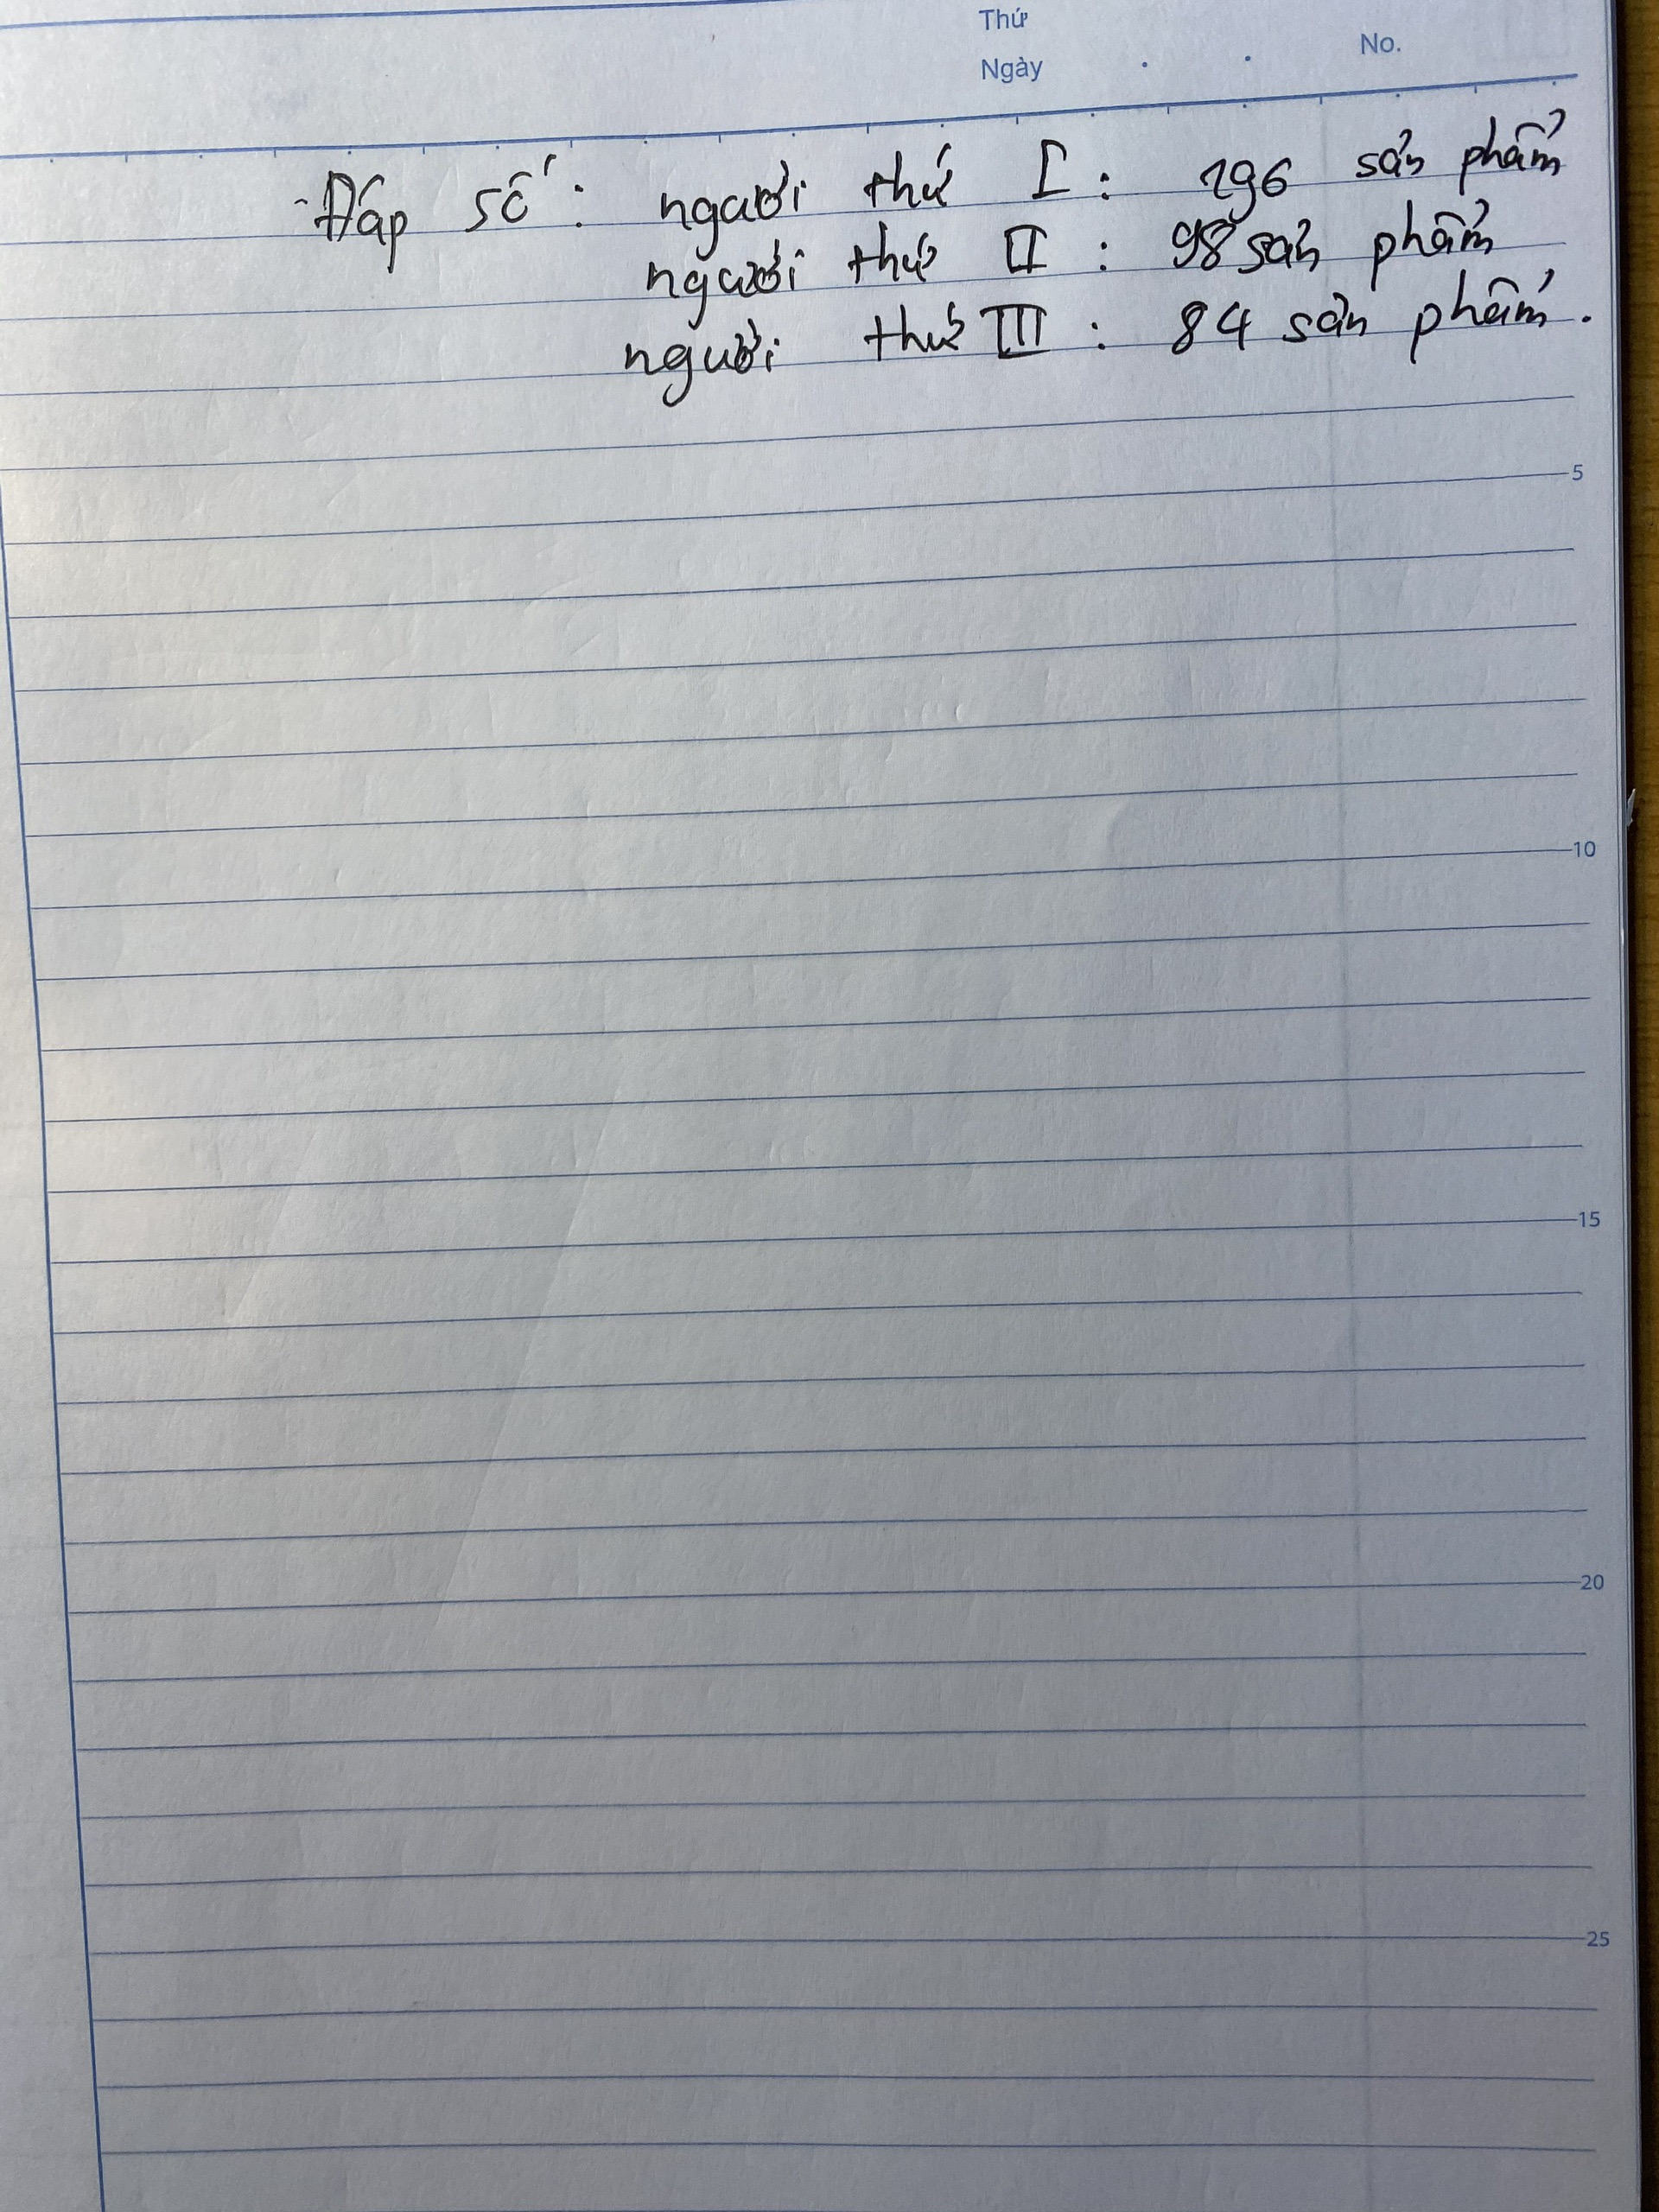 Thứ
Ngày . . No.
Đáp số: người thứ I: 196 sản phẩm
người thứ II: 98 sản phẩm
người thứ III: 84 sản phẩm.
5
10
15
20
25